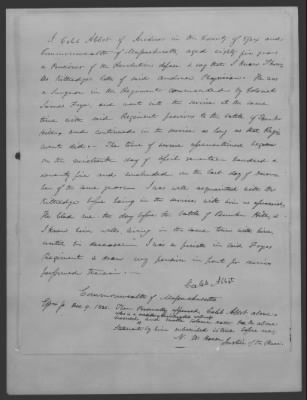 I Caleb Abbot of Andover in the County of Essex and
Commonwealth of Massachusetts aged eighty five years
a Pensioner of the Revolution depose & say that I knew Thom
as Kittredge late of said Andover Physician. He was
a Surgeon in the Regiment commanded by Colonel
James Frye, and went into the service at the same
time with said Regiment previous to the battle of Bunker
Hill, and continued in the service as long as that Regi
ment did. The time of service aforementioned began
on the nineteenth day of April seventeen hundred &
seventy five and concluded on the last day of
of the same year. I was well acquainted with
Kittredge before being in the service with him as aforesaid.
He bled me the day before the battle of Bunker Hill, &
I knew him well, living in the same town with him,
until his decease. I was a private in said Fryes
Regiment & draw my pension in part for service
performed therein.
Caleb Abbot
Commonwealth of Massachusetts
Essex ss Then Personally appeared Caleb Abbot above
named, and made solemn oath that the above
statement by him subscribed is true before me,
N. W. Hazen Justice of the Peace